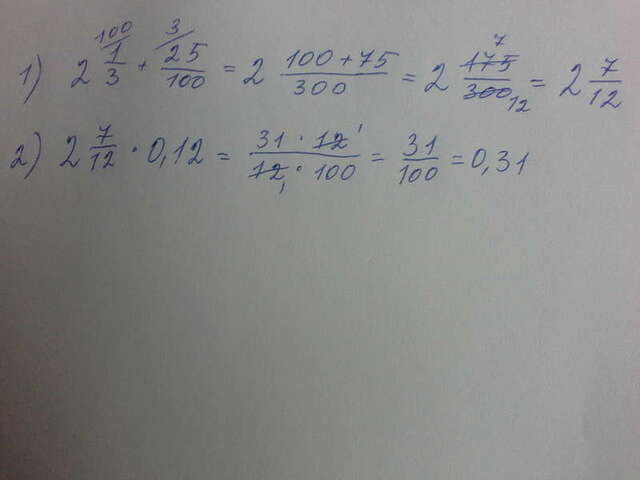 1) 2 100/ 1/3 + 3/ 25/100 = 2 (100 + 75)/300 = 2 175/300 7 12 = 2 7/12
2) 2 7/12 · 0,12 = (31 · 12 1)/(12 1 · 100) = 31/100 = 0,31